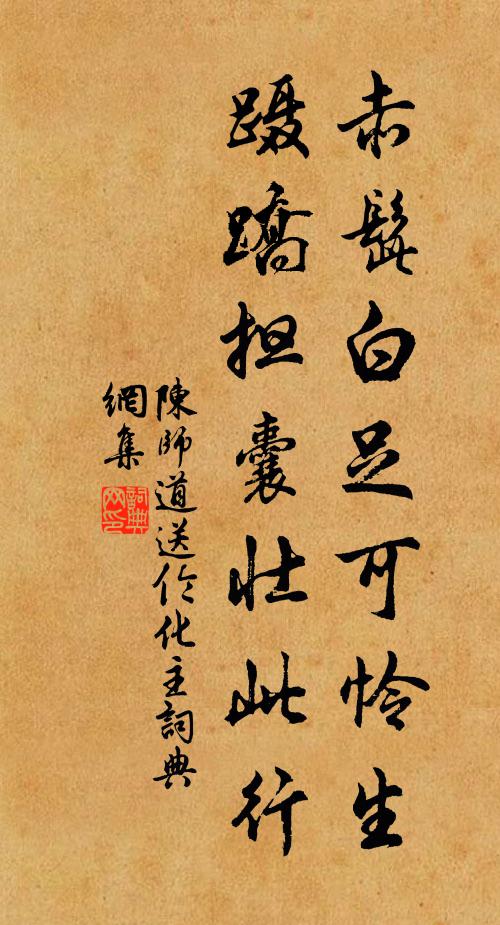 赤髭白足可怜生
蹑蹻担囊壮此行
陳師道送伦化主詞典
網集
詞典
网印